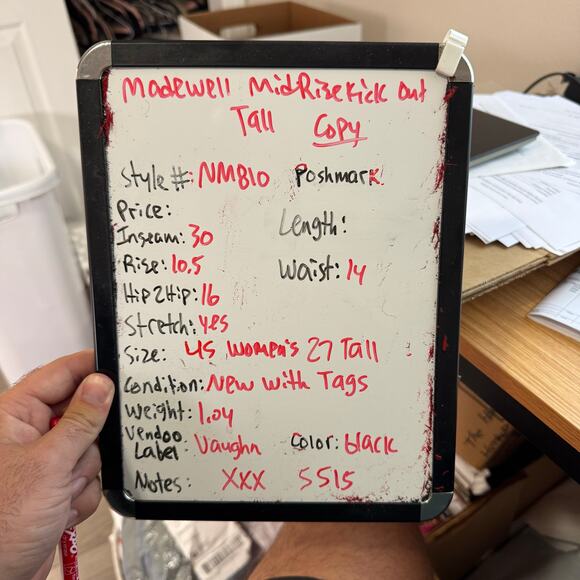 Madewell MidRise Kick Out
Tall Copy
Style #: NM810 Poshmark
Price:
Length:
Inseam: 30
Rise: 10.5 Waist: 14
Hip2Hip: 16
Stretch: yes
Size: US Women's 27 Tall
Condition: New with Tags
Weight: 1.04
Vendoo
Label: Vaughn Color: black
Notes: XXX 5515